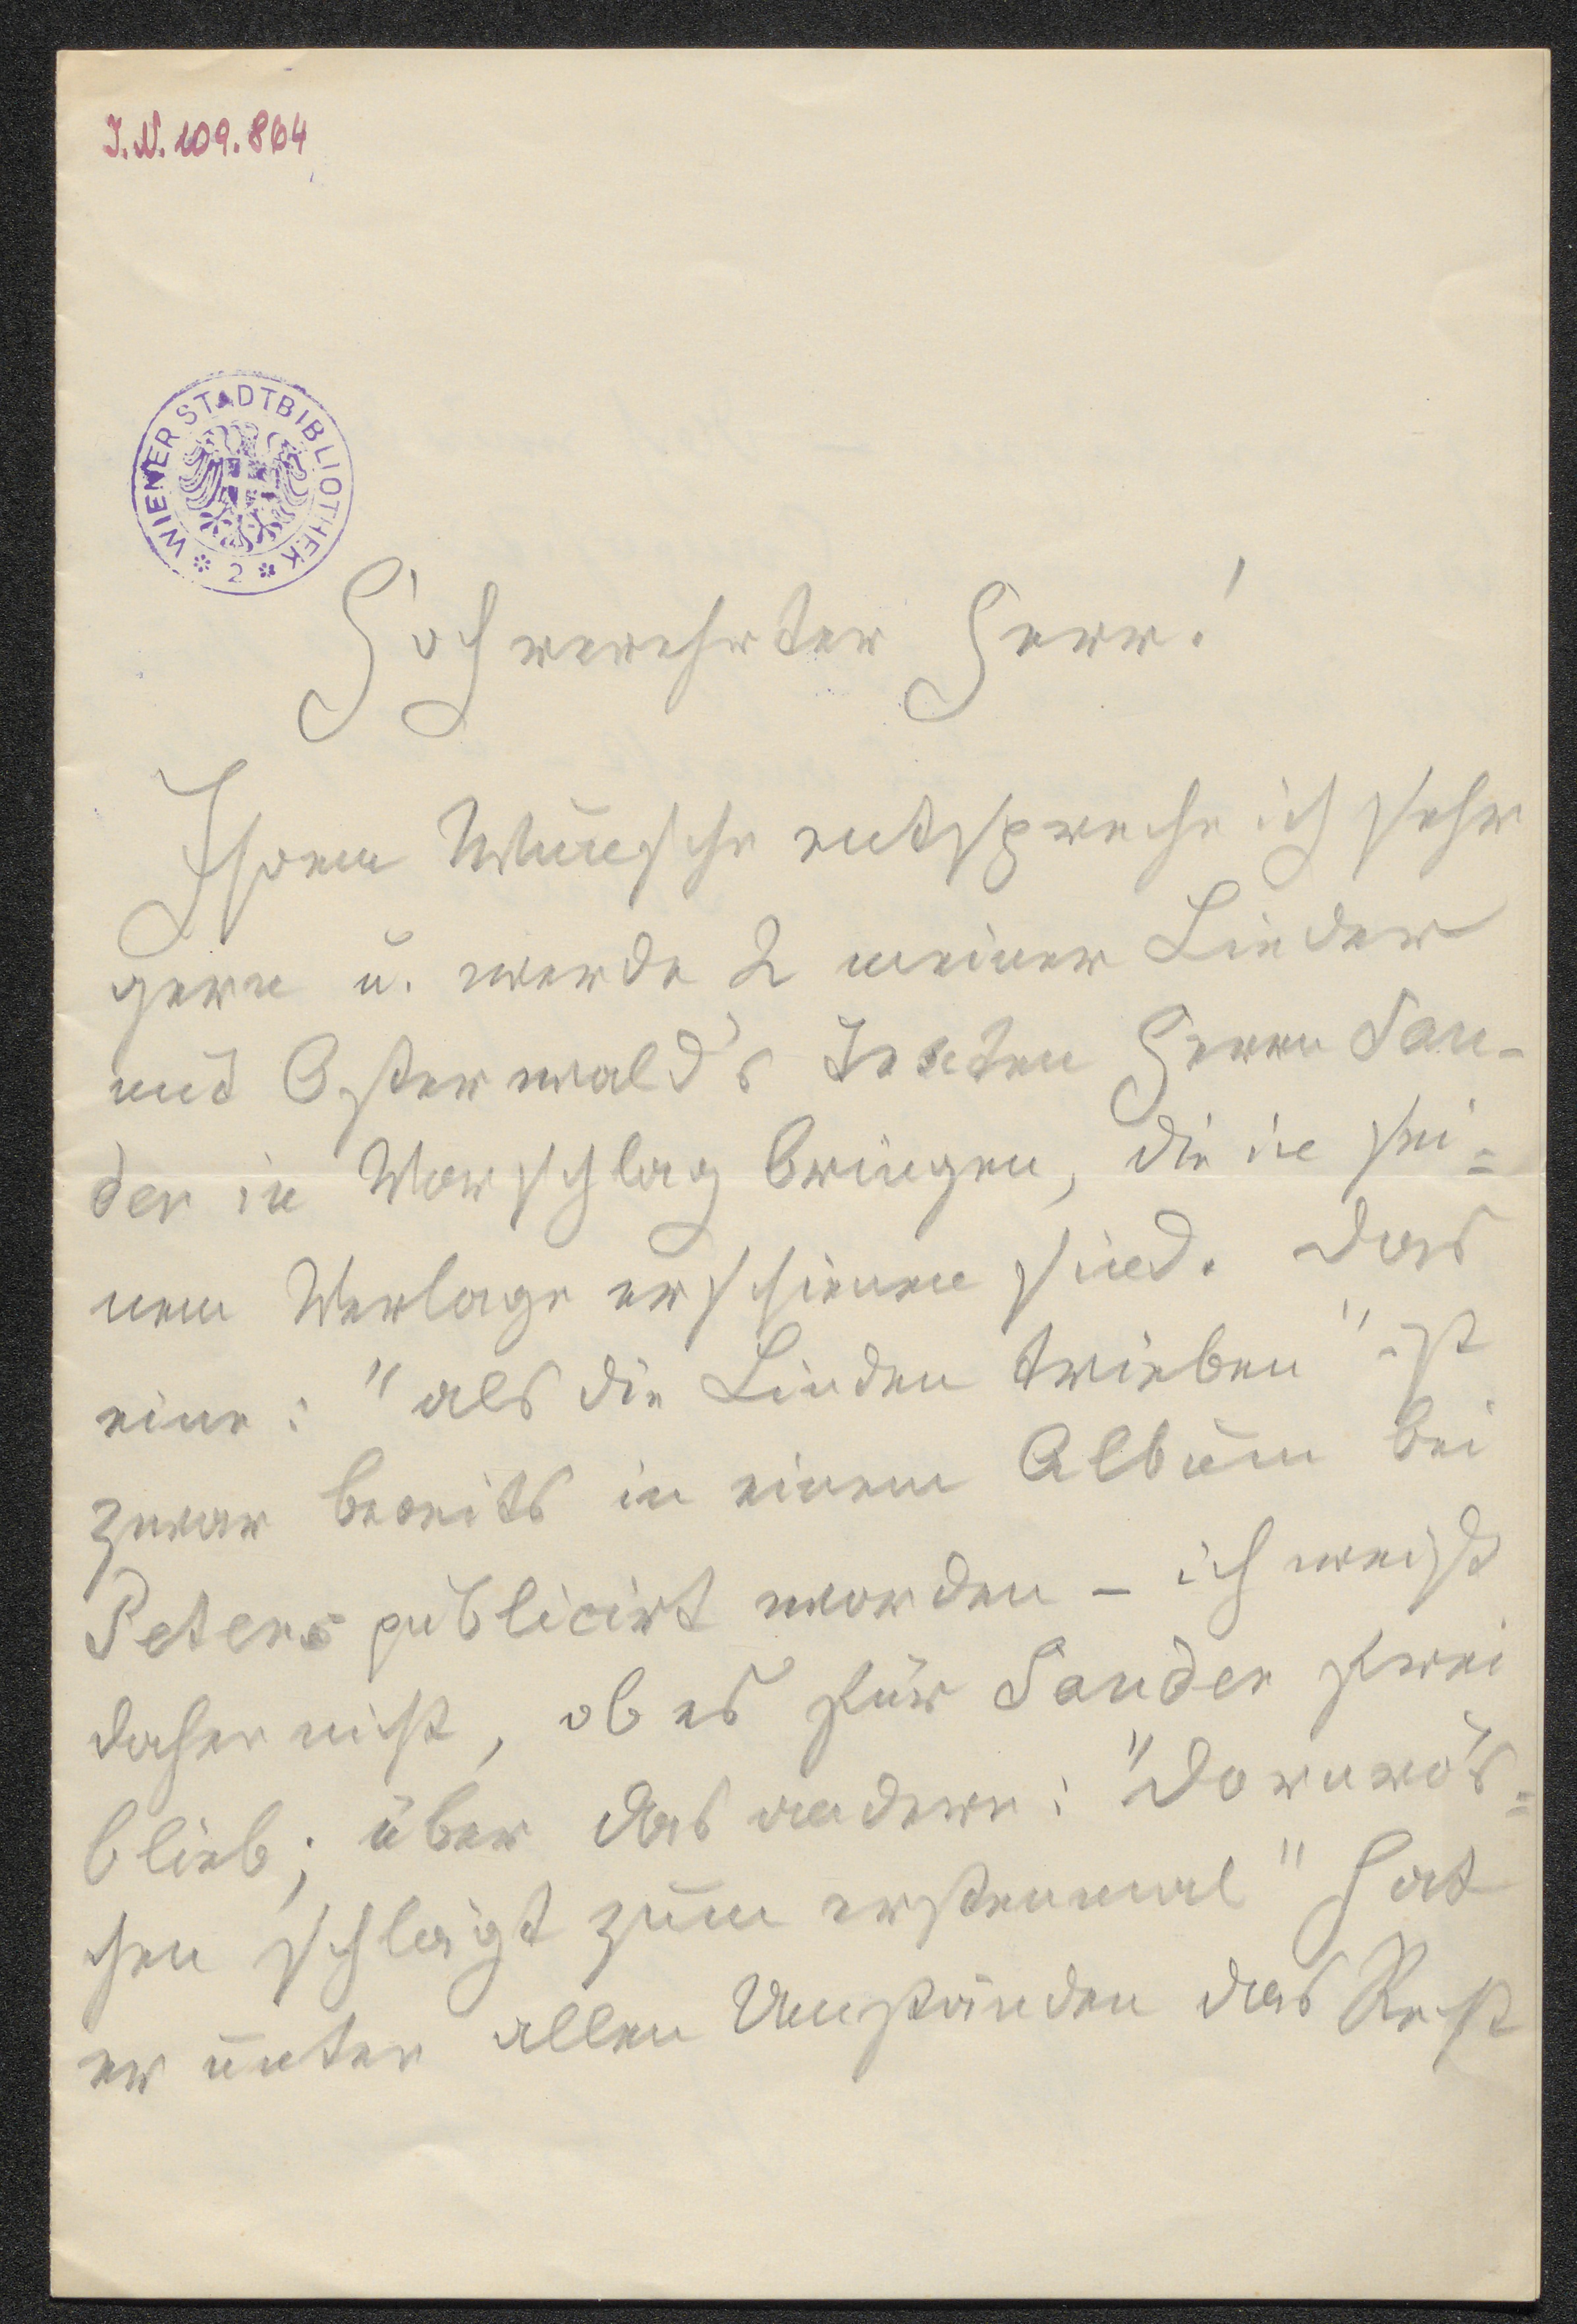 I.N. 109.864
WIENER STADTBIBLIOTHEK
2
Hochverehrter Herr!
Ihrem Wunsche entspreche ich sehr
gern u. werde 2 meiner Lieder
mit Osterwald's Texten Herrn San-
der in Vorschlag bringen, die in sei=
nem Verlage erschienen sind. Das
eine: "als die Linden trieben" ist
zwar bereits in einem Album bei
Peters publicirt worden - ich weiß
daher nicht, ob es für Sander frei
blieb; über das andere: "Dornrös=
chen schlägt zum erstenmal" hat
er unter allen Umständen das Recht